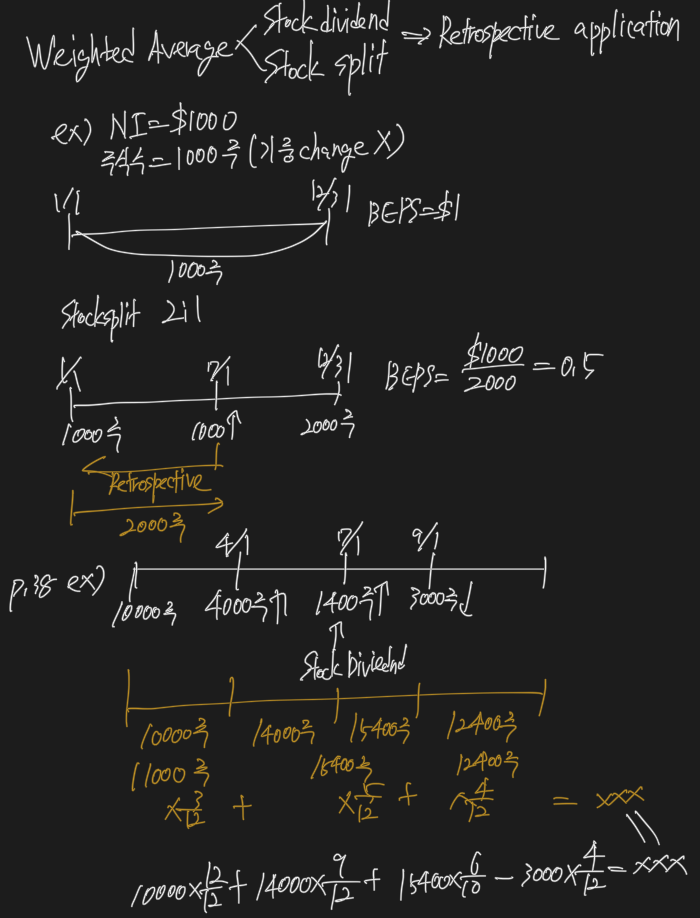 Weighted Average < Stock dividend
Stock split
⇒ Retrospective application
ex) NI=$1000
주식수=1000주 (기중 change X)
1/1 12/31 BEPS=$1
1000주
Stocksplit 2:1
1/1 7/1 12/31
BEPS= $1000/2000 = 0.5
1000주 1000↑ 2000주
Retrospective
2000주
4/1 7/1 9/1
p.38 ex)
10000주 4000주↑ 1400주↑ 3000주↓
↑
Stock Dividend
10000주 14000주 15400주 12400주
11000주 15400주 12400주
×3/12 + ×5/12 + ×4/12 = xxx
10000×12/12 + 14000×9/12 + 15400×6/10 - 3000×4/12 = xxx